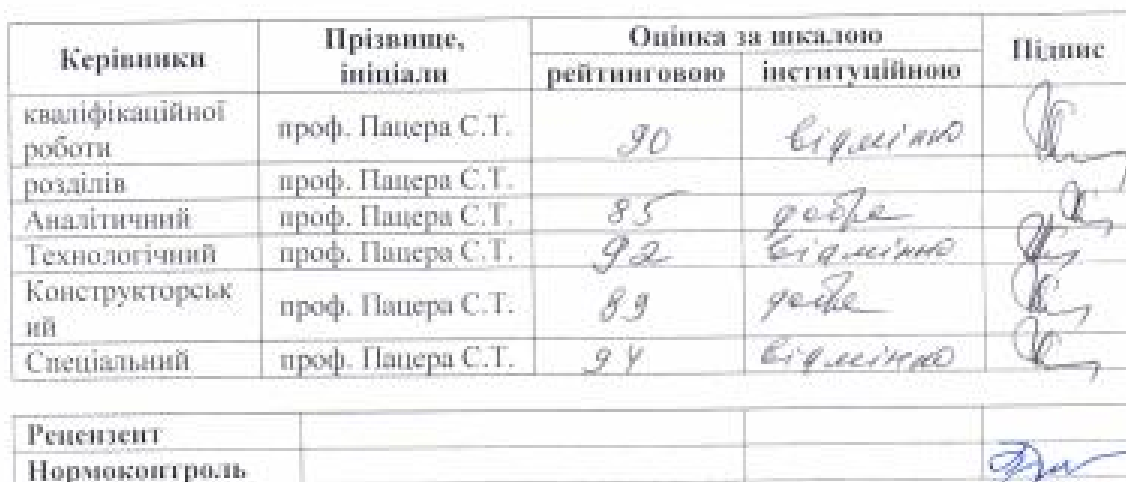 Керівники Прізвище, Оцінка за шкалою Підпис
ініціали рейтинговою інституційною
кваліфікаційної
роботи проф. Пацера С.Т. 90 відмінно
розділів проф. Пацера С.Т.
Аналітичний проф. Пацера С.Т. 85 добре
Технологічний проф. Пацера С.Т. 92 відмінно
Конструкторськ
ий проф. Пацера С.Т. 89 добре
Спеціальний проф. Пацера С.Т. 94 відмінно
Рецензент
Нормоконтроль